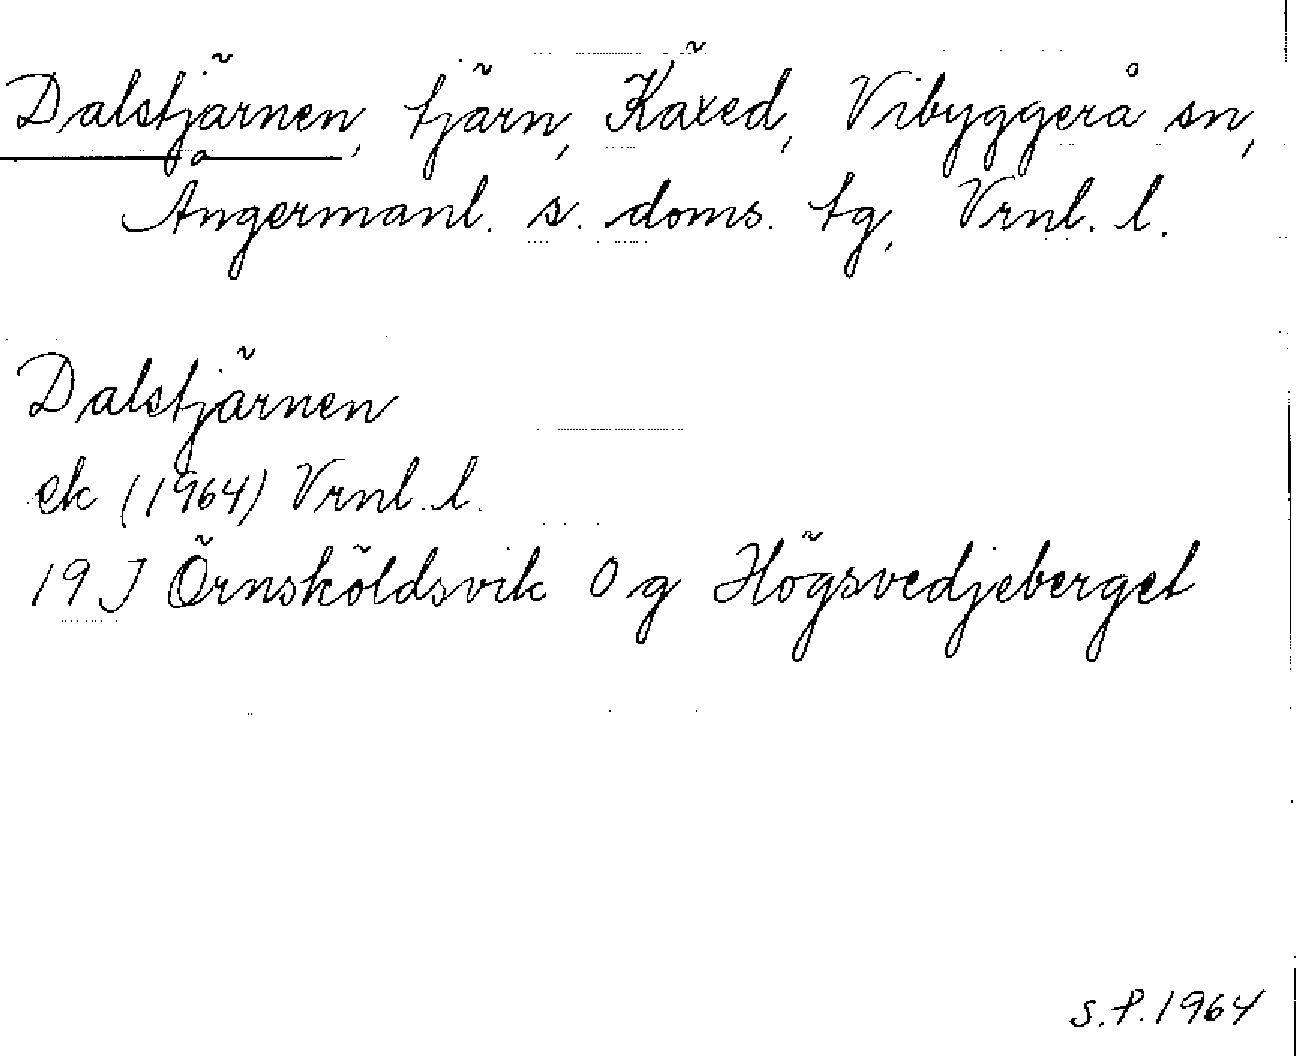 Dalstjärnen, tjärn, Käxed, Vibyggerå sn,
Ångermanl. s. doms. tg, Vrnl. l.
Dalstjärnen
ek (1964) Vrnl. l.
19 J Örnsköldsvik 0 g Högsvedjeberget
S.P. 1964